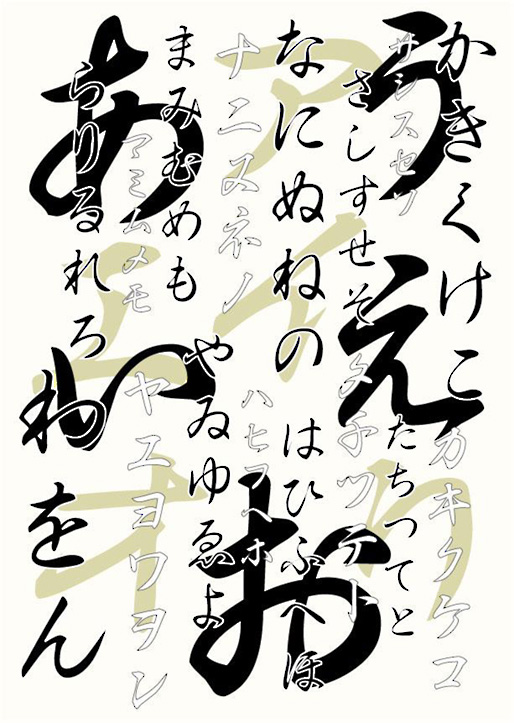 かきくけこ
カキクケコ
サシスセソ
さしすせそ
たちつてと
タチツテト
なにぬねの
はひふへほ
ナニヌネノ
ハヒフヘホ
まみむめも
やゐゆゑよ
マミムメモ
ヤエヨワヲン
らりるれろ
わをん
あ
い
う
え
お
ア
イ
ウ
エ
オ